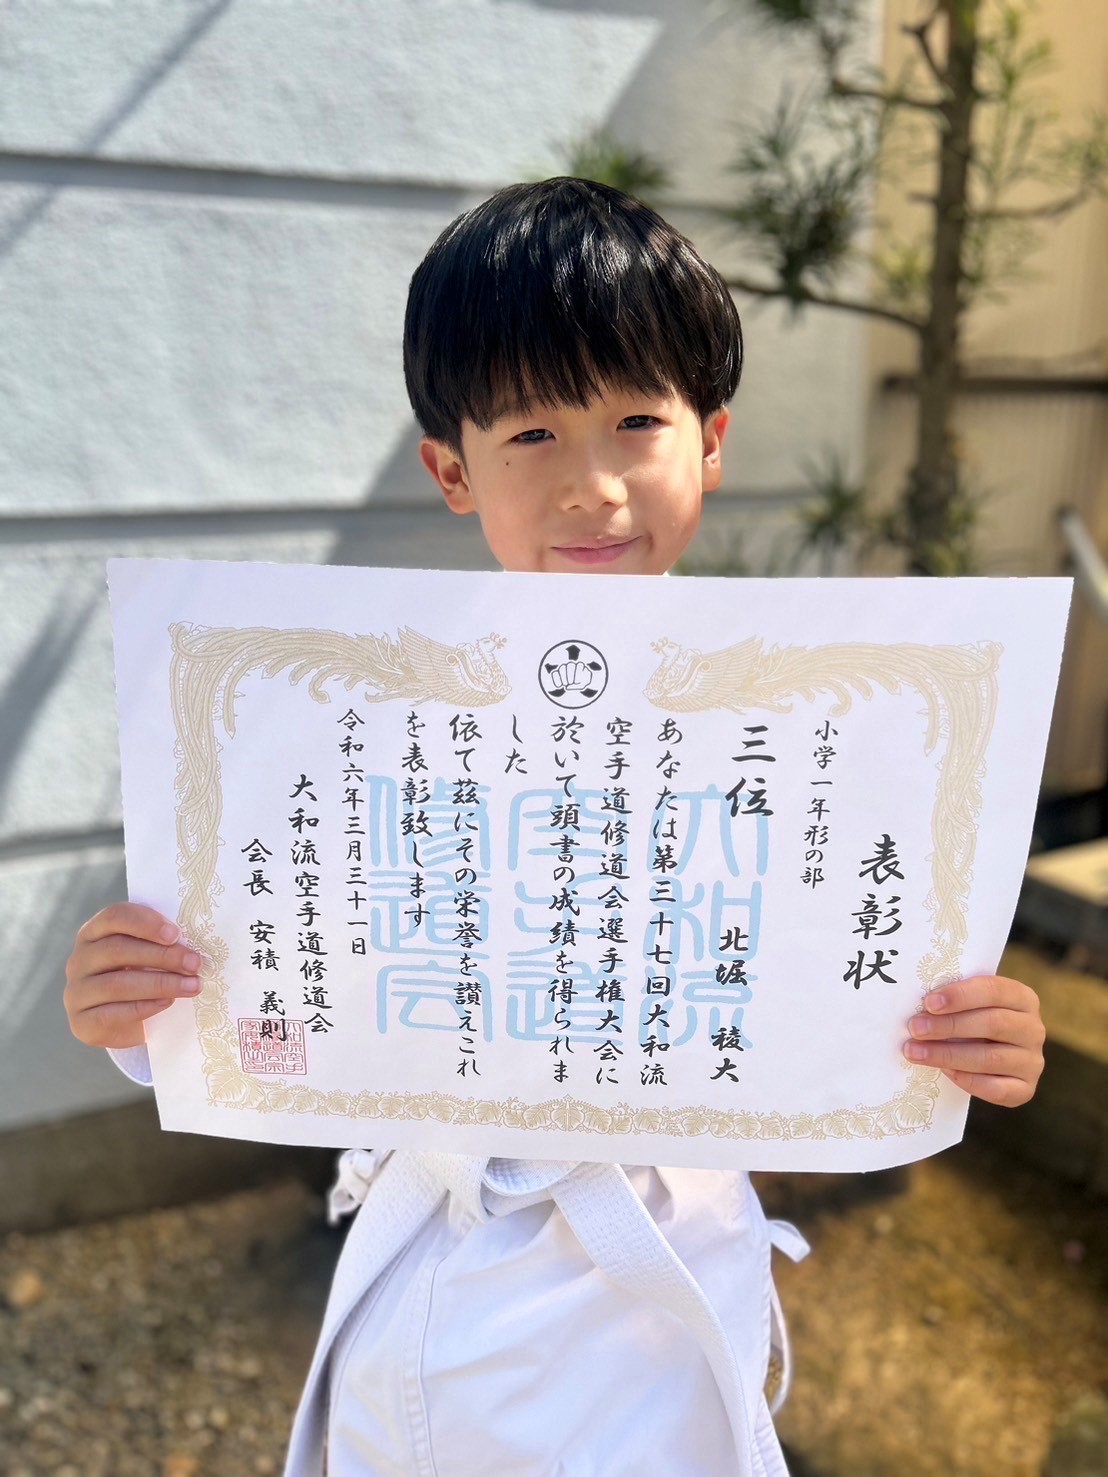 表彰状
小学一年形の部
三位
北堀 稜大
あなたは第三十七回大和流
空手道修道会選手権大会に
於いて頭書の成績を得られま
した
依て茲にその栄誉を讃えこれ
を表彰致します
令和六年三月三十一日
大和流空手道修道会
会長 安積 義則
大和流
空手道
修道会